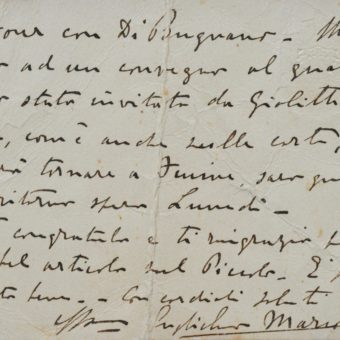 tour con Di Bugnano - M
ad un convegno al qua
stato invitato da Giolitti
, com'è anche sulle carte,
tornare a Fiume, sarò qu
ritorno spero Lunedì -
congratulo e ti ringrazio
bel articolo sul Piccolo - E
bene - Con cordiali saluti
Guglielmo Marco